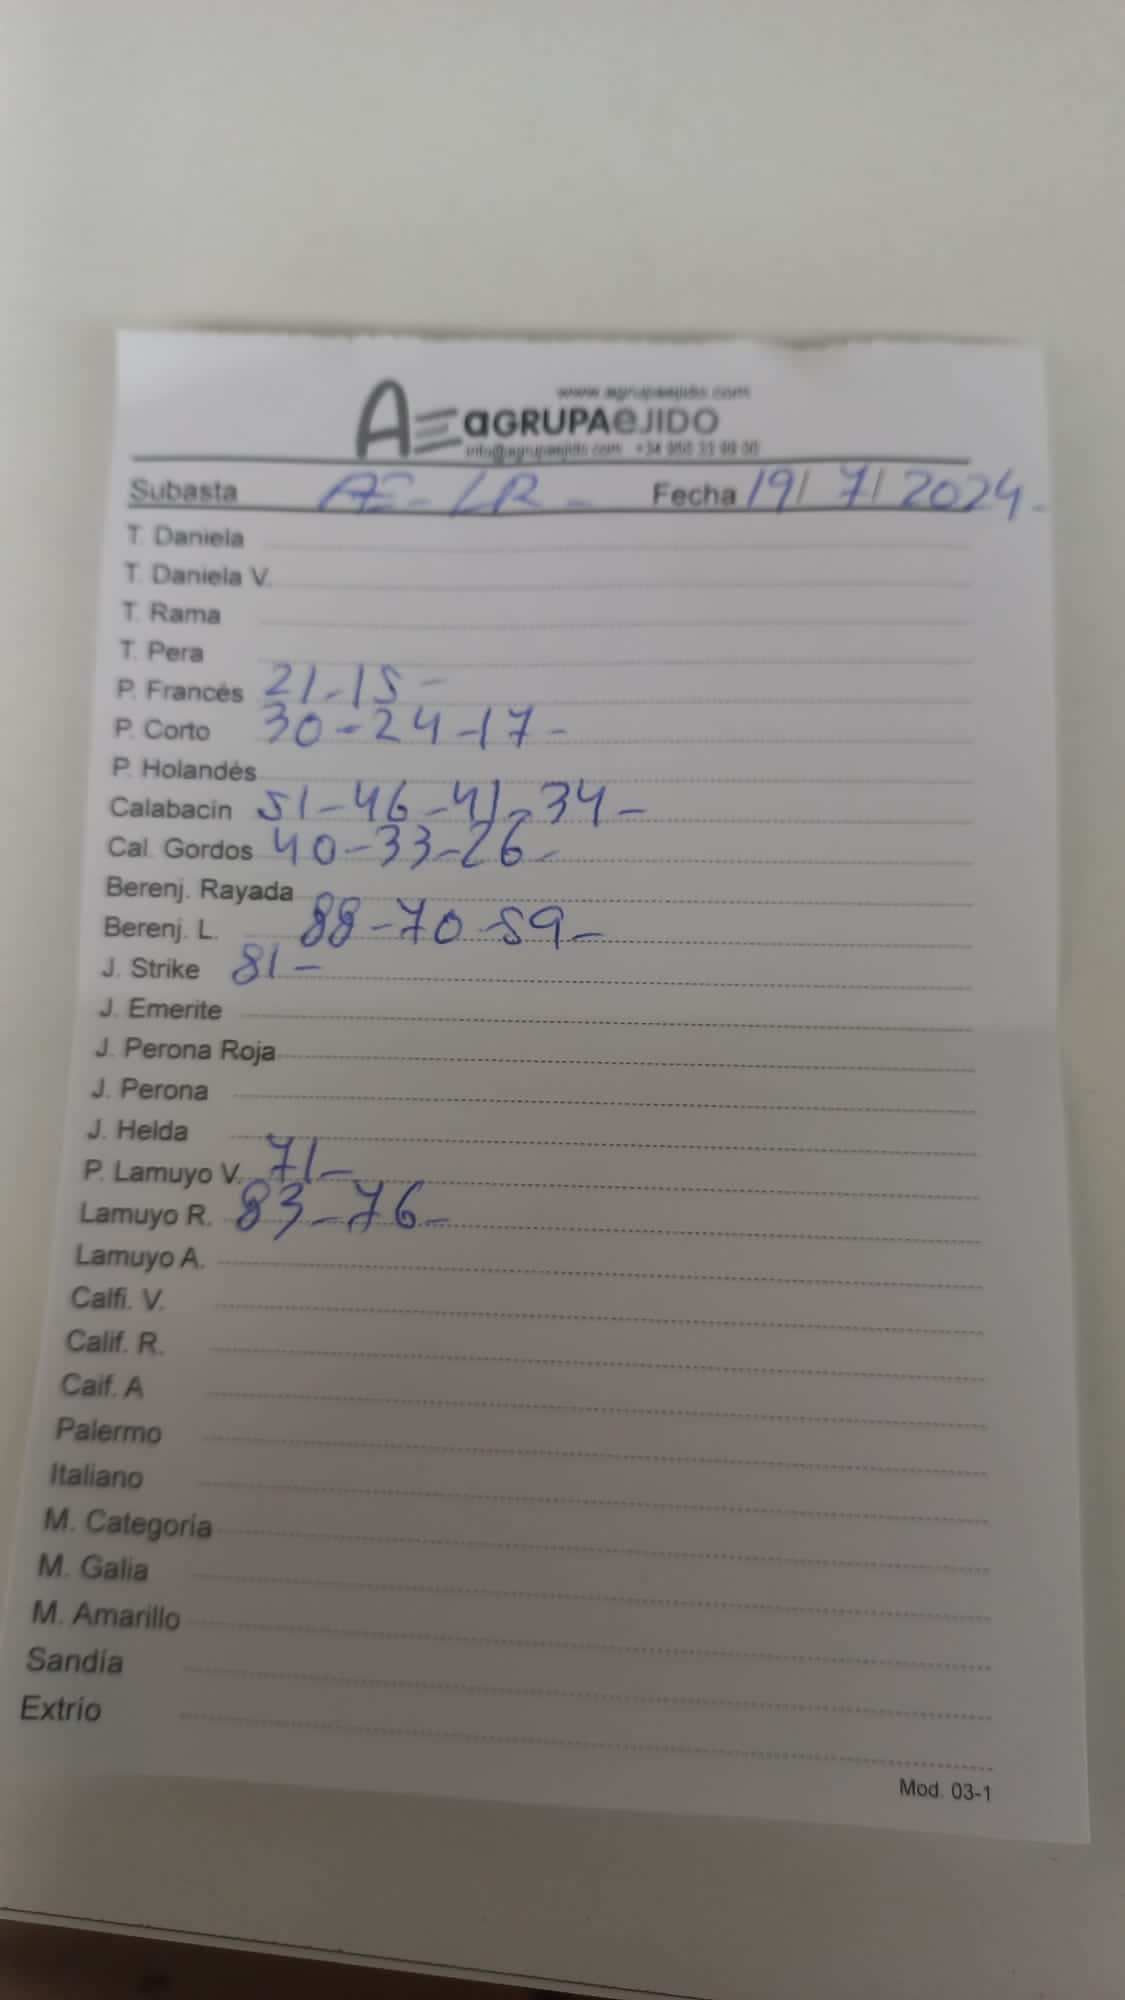 www.agrupaejido.com
AE aGRUPAeJIDO
info@agrupaejido.com +34 950 33 99 00
Subasta AE-LR- Fecha 19/ 7/ 2024-
T. Daniela
T. Daniela V.
T. Rama
T. Pera
P. Francés 21-15-
P. Corto 30-24-17-
P. Holandés
Calabacin 51-46-41-34-
Cal. Gordos 40-33-26-
Berenj. Rayada
Berenj. L. 88-70-59-
J. Strike 81-
J. Emerite
J. Perona Roja
J. Perona
J. Helda
P. Lamuyo V. 71-
Lamuyo R. 83-76-
Lamuyo A.
Calfi. V.
Calif. R.
Caif. A
Palermo
Italiano
M. Categoría
M. Galia
M. Amarillo
Sandía
Extrio
Mod. 03-1